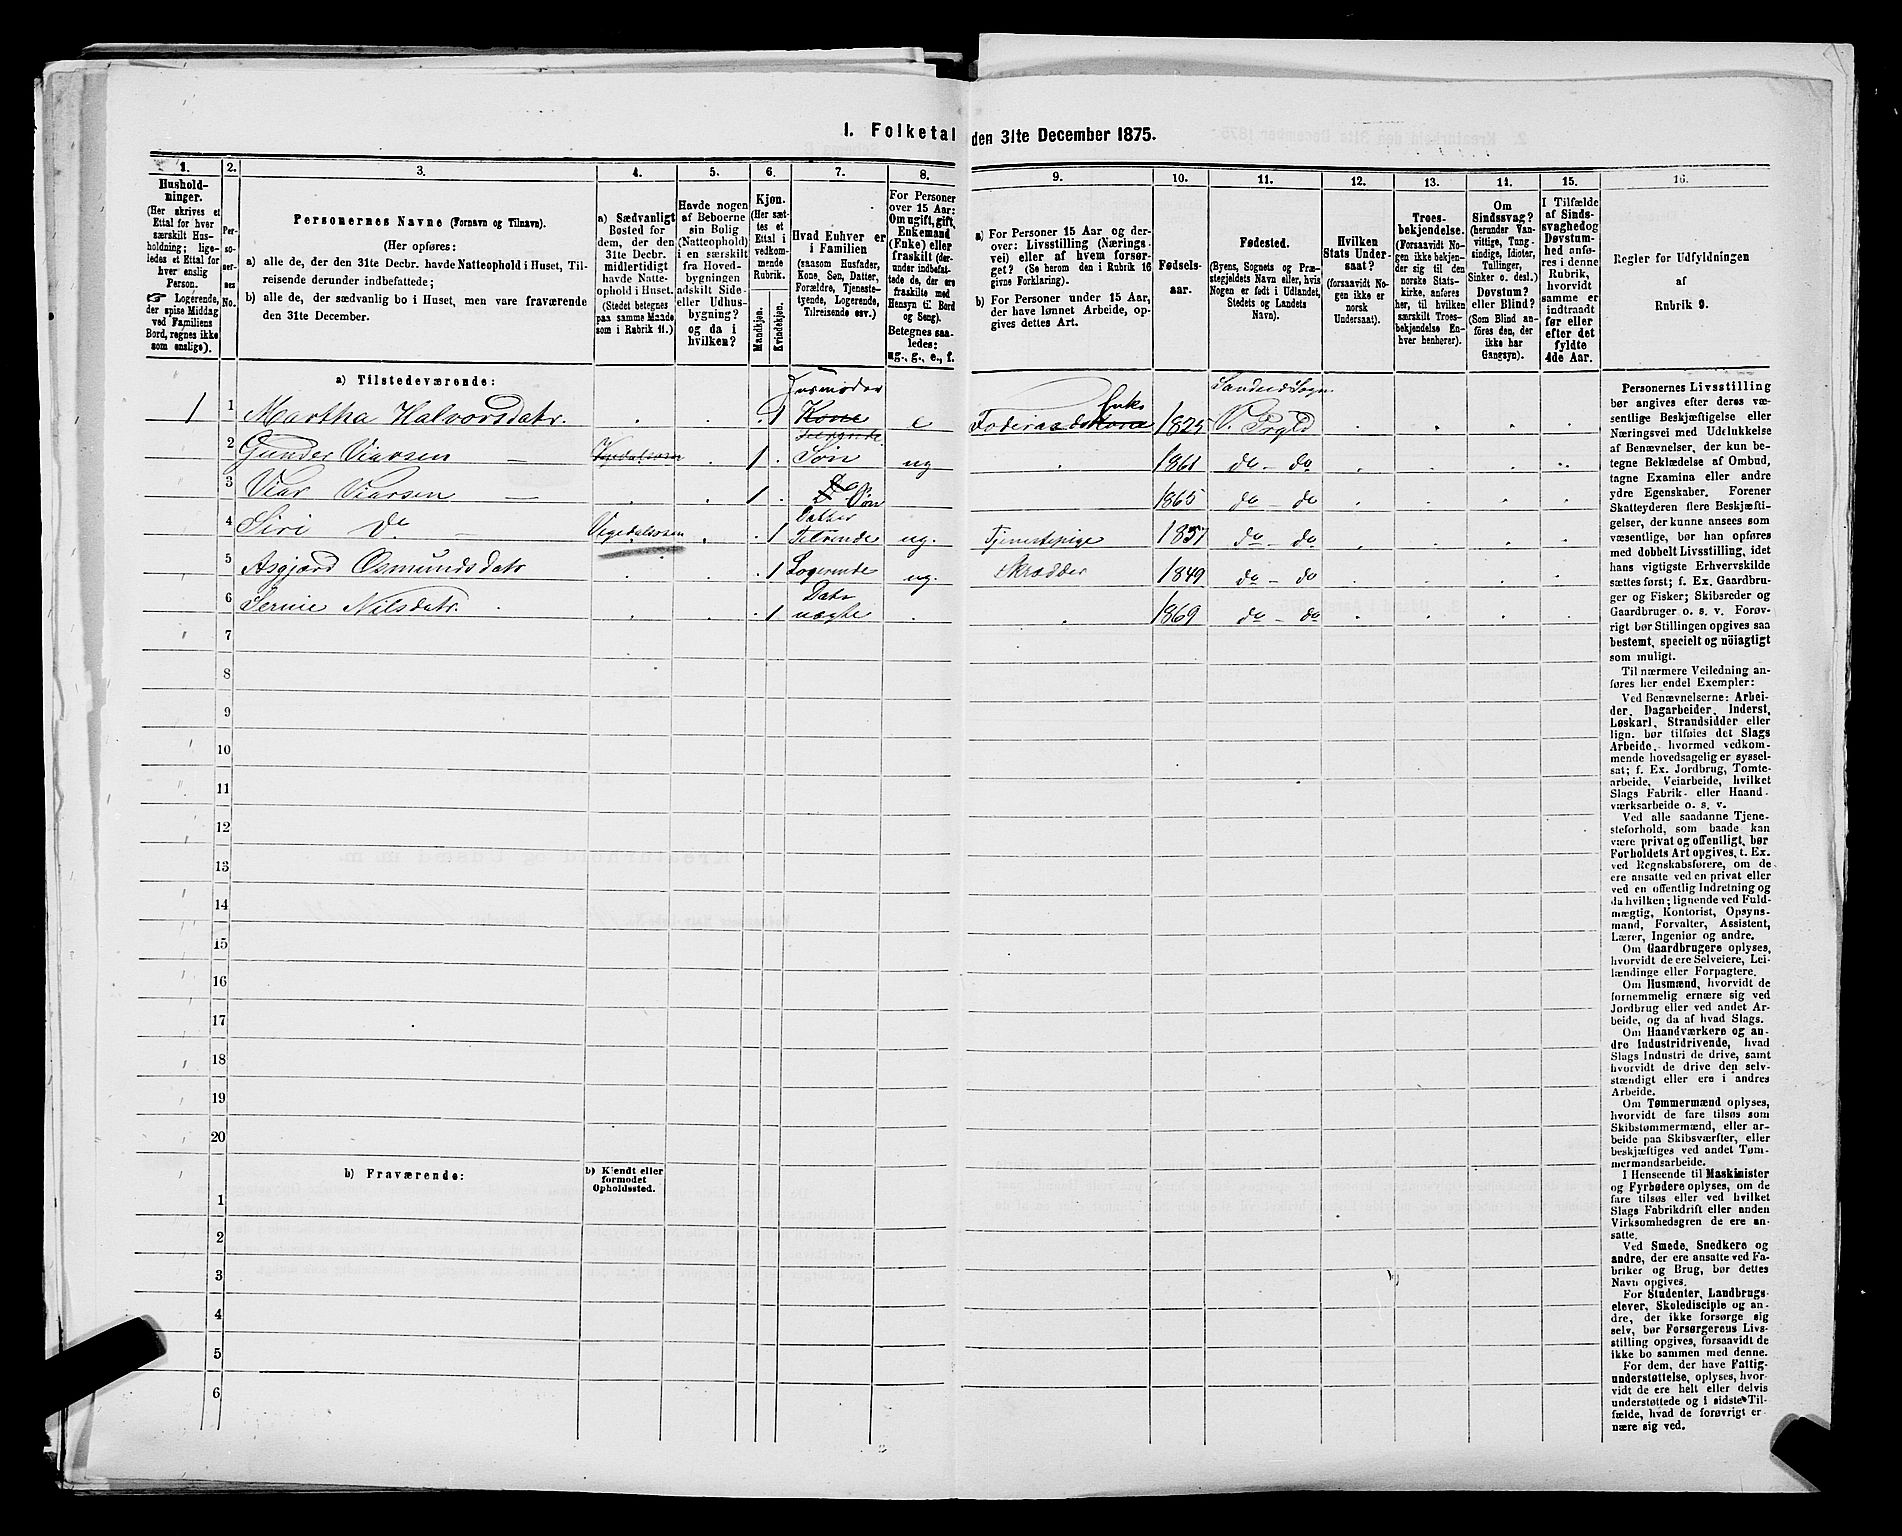 I. Folketal den 31te December 1875.
1. 2. 3. 4. 5. 6. 7. 8. 9. 10. 11. 12. 13. 14. 15. 16.
Husholdninger.
(Her skrives et
Ettal for hver
særskilt Husholdning;
ligeledes et Ettal for
hver enslig
Person.
☞ Logerende,
der spise Middag
ved Familiens
Bord, regnes ikke
som enslige).
Personernes No.
Personernes Navne (Fornavn og Tilnavn).
(Her opføres:
a) alle de, der den 31te Decbr. havde Natteophold i Huset, Tilreisende derunder indbefattede;
b) alle de, der sædvanlig bo i Huset, men vare fraværende
den 31te December.
a) Sædvanligt
Bosted for
dem, der den
31te Decbr.
midlertidigt
havde Natteophold i Huset.
(Stedet betegnes
paa samme Maade
som i Rubrik 11.)
Havde nogen
af Beboerne
sin Bolig
(Natteophold)
i en særskilt
fra Hovedbygningen
adskilt Side-
eller Udhusbygning?
og da i
hvilken?
Kjøn.
(Her sættes et
Ettal i
vedkommende
Rubrik.
Mandkjøn.
Kvindekjøn.
Hvad Enhver er
i Familien
(saasom Husfader,
Kone, Søn, Datter,
Forældre, Tjenestetyende, Logerende,
Tilreisende osv.)
For Personer
over 15 Aar:
Om ugift, gift,
Enkemand
(Enke) eller
fraskilt (derunder indbefattede de, der ere
fraskilte med
Hensyn til Bord
og Seng).
Betegnes saaledes:
ug., g., e., f.
a) For Personer 15 Aar og derover: Livsstilling (Næringsvei) eller af hvem forsørget? (Se herom den i Rubrik 16
givne Forklaring).
b) For Personer under 15 Aar,
der have lønnet Arbeide, opgives dettes Art.
Fødselsaar.
Fødested.
(Byens, Sognets og Præstegjeldets Navn eller, hvis
Nogen er født i Udlandet,
Stedets og Landets
Navn).
Hvilken
Stats Undersaat?
(forsaavidt Nogen ikke er
norsk
Undersaat).
Troesbekjendelse.
(Forsaavidt Nogen ikke bekjender sig til den
norske Statskirke, anføres
her, til hvilken
særskilt Troesbekjendelse Enhver henhører).
Om
Sindssvag?
(herunder Vanvittige, Tungsindige, Idioter,
Tullinger,
Sinker o. desl.)
Døvstum?
eller Blind?
(Som Blind anføres den, der
ikke har
Gangsyn).
I Tilfælde
af Sindssvaghed og
Døvstumhed anføres i denne
Rubrik,
hvorvidt
samme er
indtraadt
før eller
efter det
fyldte
4de Aar.
Regler for Udfyldningen
af
Rubrik 9.
a) Tilstedeværende:
1 1 Martha Halvorsdatr. 1 Kone Husmoder e Føderaadskone Enke 1825 Sandeid Sogn
2 Gunder Viarsen 1 Tilreisende Søn ug 1861 do - do
3 Viar Viarsen 1 Do Søn 1865 do - do
4 Siri Do Vegedalsosen 1 Datter Tilreisende ug. Tjenestepige 1857 do - do
5 Asgjærd Osmundsdatr 1 Logerende ug. Skrædder 1849 do - do
6 Serine Nilsdatr. 1 Datr 1869 do - do
7
8
9
10
11
12
13
14
15
16
17
18
19
20
b) Fraværende:
b) Kjendt eller
formodet
Opholdssted.
1
2
3
4
5
6
Personernes Livsstilling
bør angives efter deres væsentlige Beskjæftigelse eller
Næringsvei med Udelukkelse
af Benævnelser, der kun betegne Beklædelse af Ombud,
tagne Examina eller andre
ydre Egenskaber. Forener
Skatteyderen flere Beskjæftigelser, der kunne ansees som
væsentlige, bør han opføres
med dobbelt Livsstilling, idet
hans vigtigste Erhvervskilde
sættes først; f. Ex. Gaardbruger og Fisker; Skibsreder og
Gaardbruger o. s. v. Forøvrigt bør Stillingen opgives saa
bestemt, specielt og nöiagtigt
som muligt.
Til nærmere Veiledning anføres her endel Exempler:
Ved Benævnelserne: Arbeider, Dagarbeider, Inderst,
Løskarl, Strandsidder eller
lign. bør tilføies det Slags
Arbeide, hvormed vedkommende hovedsagelig er sysselsat; f. Ex. Jordbrug, Tomtearbeide, Veiarbeide, hvilket
Slags Fabrik- eller Haandværksarbeide o. s. v.
Ved alle saadanne Tjenesteforhold, som baade kan
være privat og offentligt, bør
Forholdets Art opgives, t. Ex.
ved Regnskabsførere, om de
ere ansatte ved en privat eller
ved en offentlig Indretning og
da hvilken; lignende ved Fuldmægtig, Kontorist, Opsynsmand, Forvalter, Assistent,
Lærer, Ingeniør og andre.
Om Gaardbrugere oplyses,
hvorvidt de ere Selveiere, Leilændinge eller Forpagtere.
Om Husmænd, hvorvidt de
fornemmelig ernære sig ved
Jordbrug eller ved andet Arbeide, og da af hvad Slags.
Om Haandværkere og andre Industridrivende, hvad
Slags Industri de drive, samt
hvorvidt de drive den selvstændigt eller ere i andres
Arbeide.
Om Tømmermænd oplyses,
hvorvidt de fare tilsøs som
Skibstømmermænd, eller arbeide paa Skibsværfter, eller
beskjæftiges ved andet Tømmermandsarbeide.
I Henseende til Maskinister
og Fyrbødere oplyses, om de
fare tilsøs eller ved hvilket
Slags Fabrikdrift eller anden
Virksomhedsgren de ere ansatte.
Ved Smede, Snedkere og
andre, der ere ansatte ved Fabriker og Brug, bør dettes
Navn opgives.
For Studenter, Landbrugselever, Skoledisciple og andre, der ikke forsørge sig
selv, bør Forsørgerens Livsstilling opgives, forsaavidt de
ikke bo sammen med denne.
For dem, der have Fattigunderstøttelse, oplyses, hvorvidt de ere helt eller delvis
understøttede og i sidste Tilfælde, hvad de forøvrigt ernære sig ved.